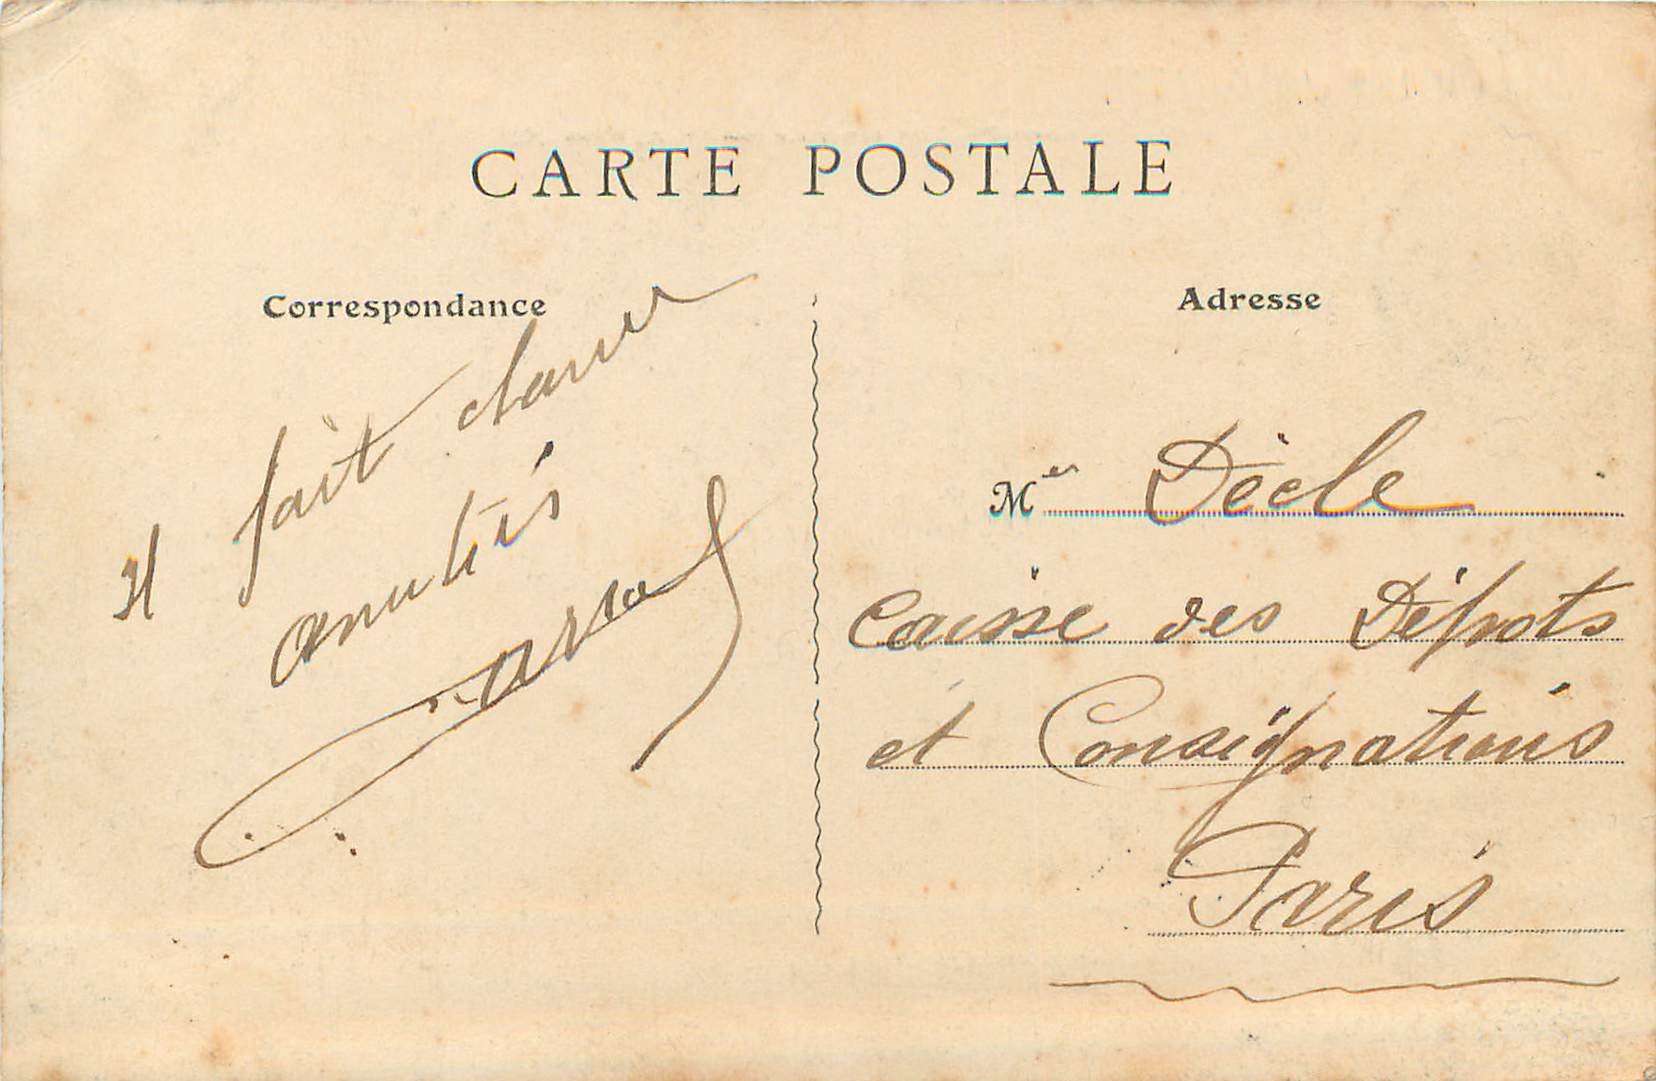 CARTE POSTALE
Correspondance
Il fait chaud
amitiés
Adresse
Mer Dècle
Caisse des Dépots
et Consignations
Paris